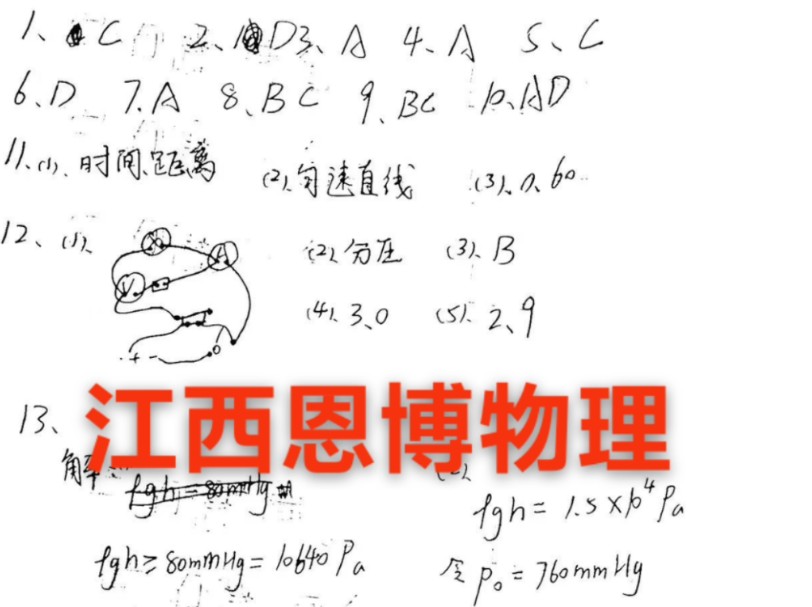 1、C 2、D 3、A 4、A 5、C
6、D 7、A 8、BC 9、BC 10、AD
11、(1)、时间、距离 (2)、匀速直线 (3)、0.60
12、(1)、 (2)、分压 (3)、B
V A
(4)、3.0 (5)、2.9
+ -
江西恩博物理
13、
解
ρgh = 80mmHg
ρgh = 1.5×10⁴Pa
ρgh ≥ 80mmHg = 10640Pa 令 P₀ = 760mmHg